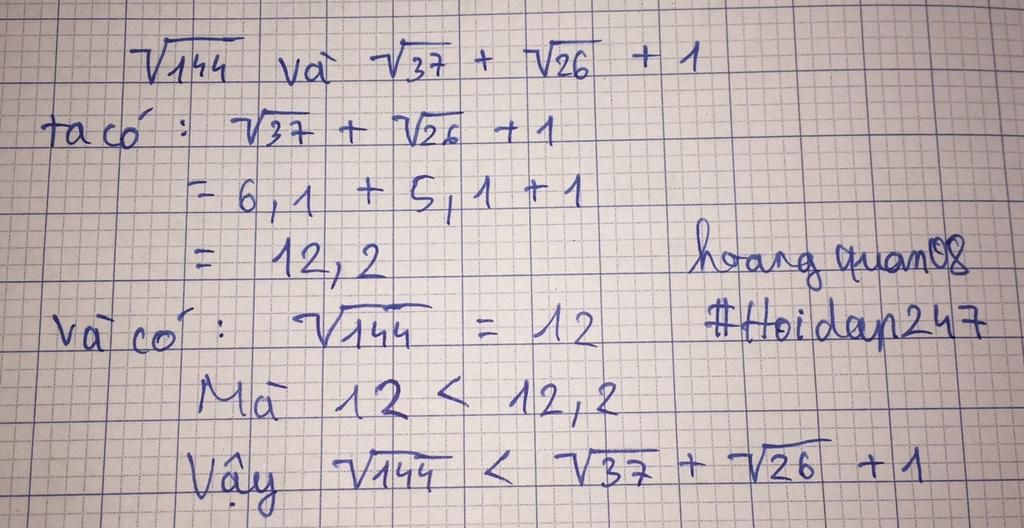 √144 và √37 + √26 + 1
ta có: √37 + √26 + 1
= 6,1 + 5,1 + 1
= 12,2
hoangquan08
Và có: √144 = 12
#Hoidap247
Mà 12 < 12,2
Vậy √144 < √37 + √26 + 1